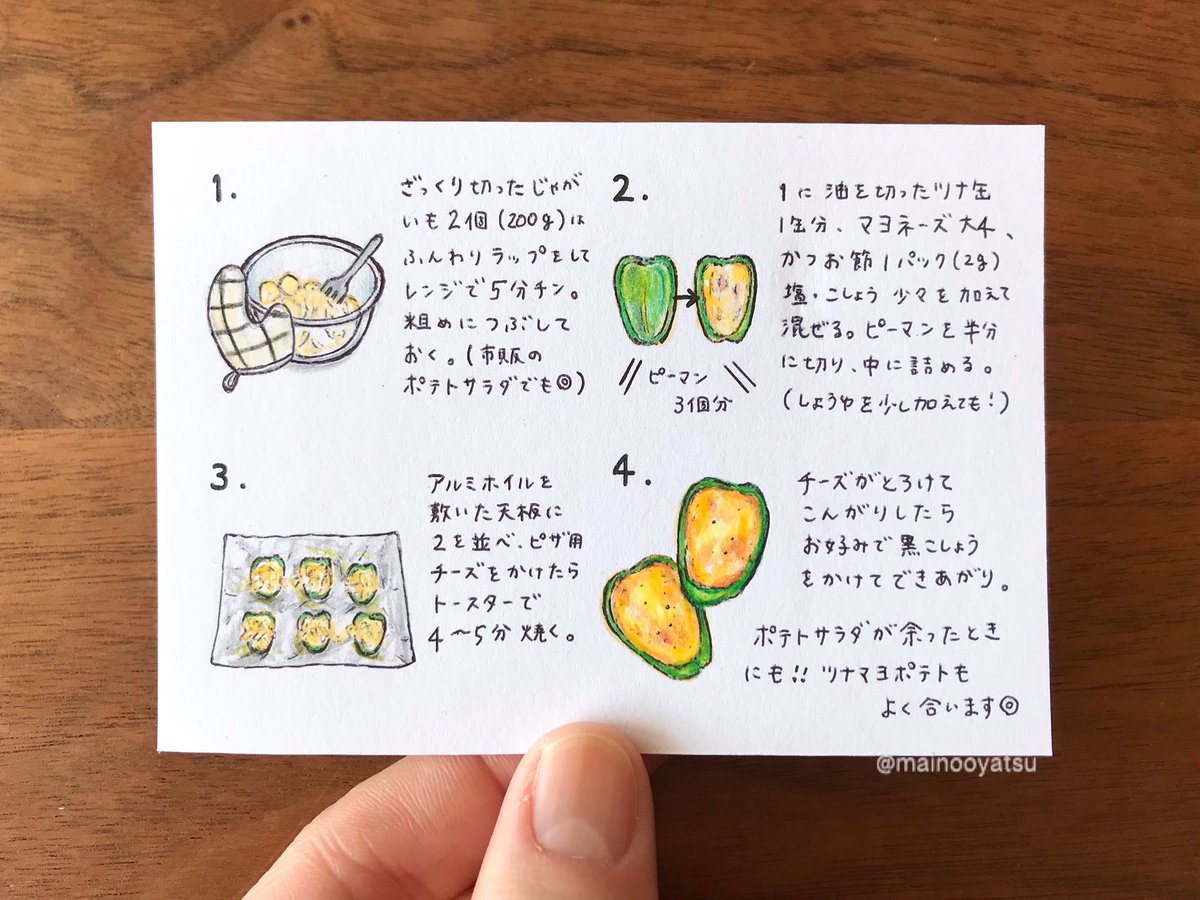 1.
ざっくり切ったじゃが
いも2個(200g)は
ふんわりラップをして
レンジで5分チン。
粗めにつぶして
おく。(市販の
ポテトサラダでも◎)
2.
ピーマン
3個分
1に油を切ったツナ缶
1缶分、マヨネーズ大4、
かつお節1パック(2g)
塩・こしょう少々を加えて
混ぜる。ピーマンを半分
に切り、中に詰める。
(しょうゆを少し加えても!)
3.
アルミホイルを
敷いた天板に
2を並べ、ピザ用
チーズをかけたら
トースターで
4〜5分焼く。
4.
チーズがとろけて
こんがりしたら
お好みで黒こしょう
をかけてできあがり。
ポテトサラダが余ったとき
にも!!ツナマヨポテトも
よく合います◎
@mainooyatsu